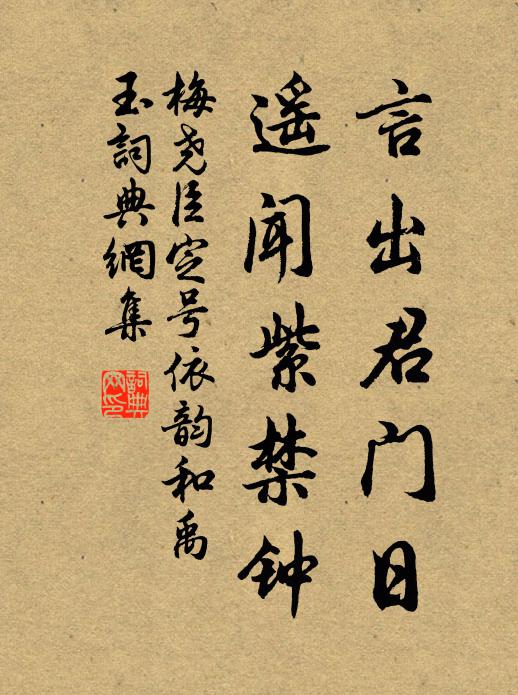 言出君门日
遥闻紫禁钟
梅尧臣定号依韵和禹
玉詞典網集
詞典网印